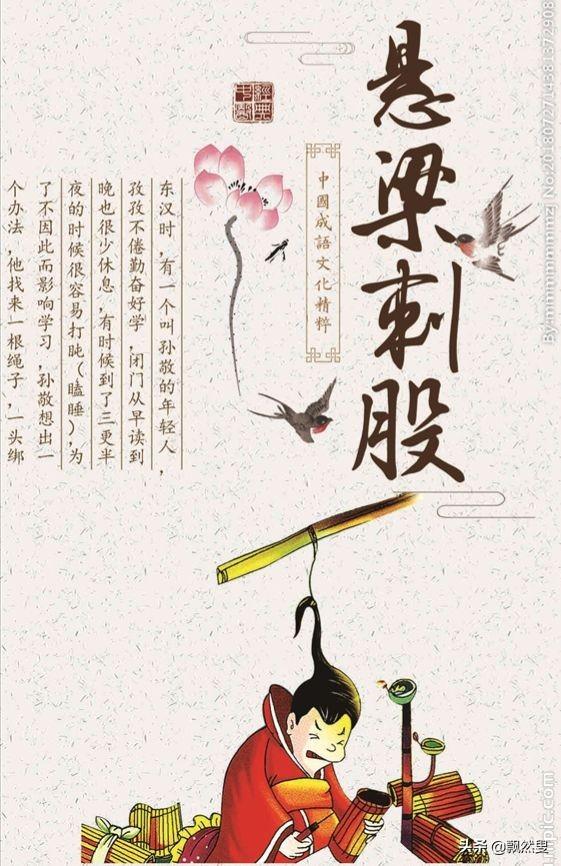 悬梁刺股
中國成語文化精粹
經典
东汉时,有一个叫孙敬的年轻人,
孜孜不倦勤奋好学,闭门从早读到
晚也很少休息,有时候到了三更半
夜的时候很容易打盹(瞌睡),为
了不因此而影响学习,孙敬想出一
个办法,他找来一根绳子,一头绑
头条 @飘然叟